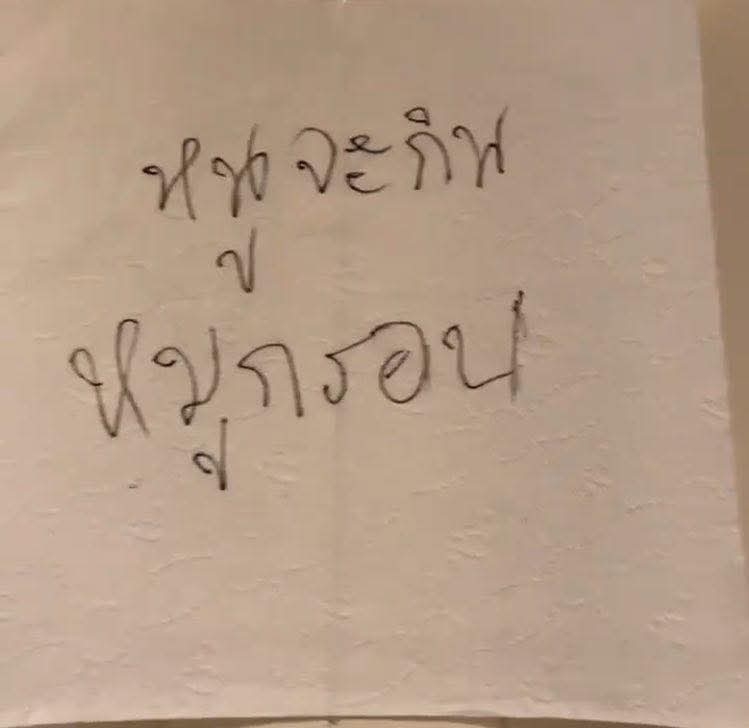 หนูจะกิน
หมูกรอบ